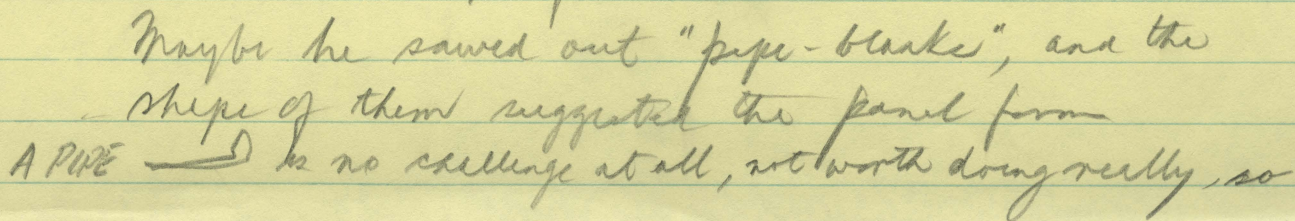 Maybe he sawed out "pipe-blanks", and the
shape of them suggested the panel form
A PIPE is no challenge at all, not worth doing really, so